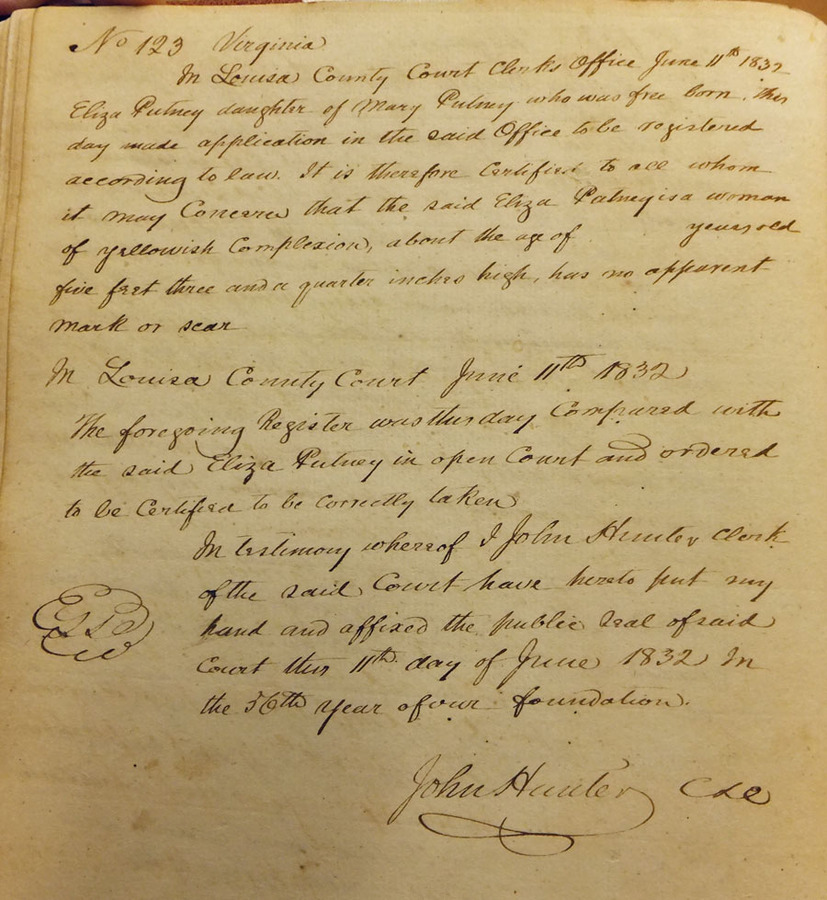 No 123 Virginia
In Louisa County Court Clerks Office June 11th 1832
Eliza Putney daughter of Mary Putney who was free born, this
day made application in the said Office to be registered
according to law. It is therefore Certified to all whom
it may Concern that the said Eliza Putney is a woman
of yellowish Complexion, about the age of years old
five feet three and a quarter inches high, has no apparent
mark or scar
In Louisa County Court June 11th 1832
The foregoing Register was this day Compared with
the said Eliza Putney in open Court and ordered
to be Certified to be Correctly taken
In testimony whereof I John Hunter Clerk
of the said Court have hereto put my
hand and affixed the public seal of said
Court this 11th day of June 1832 In
the 56th year of our foundation.
John Hunter CLC